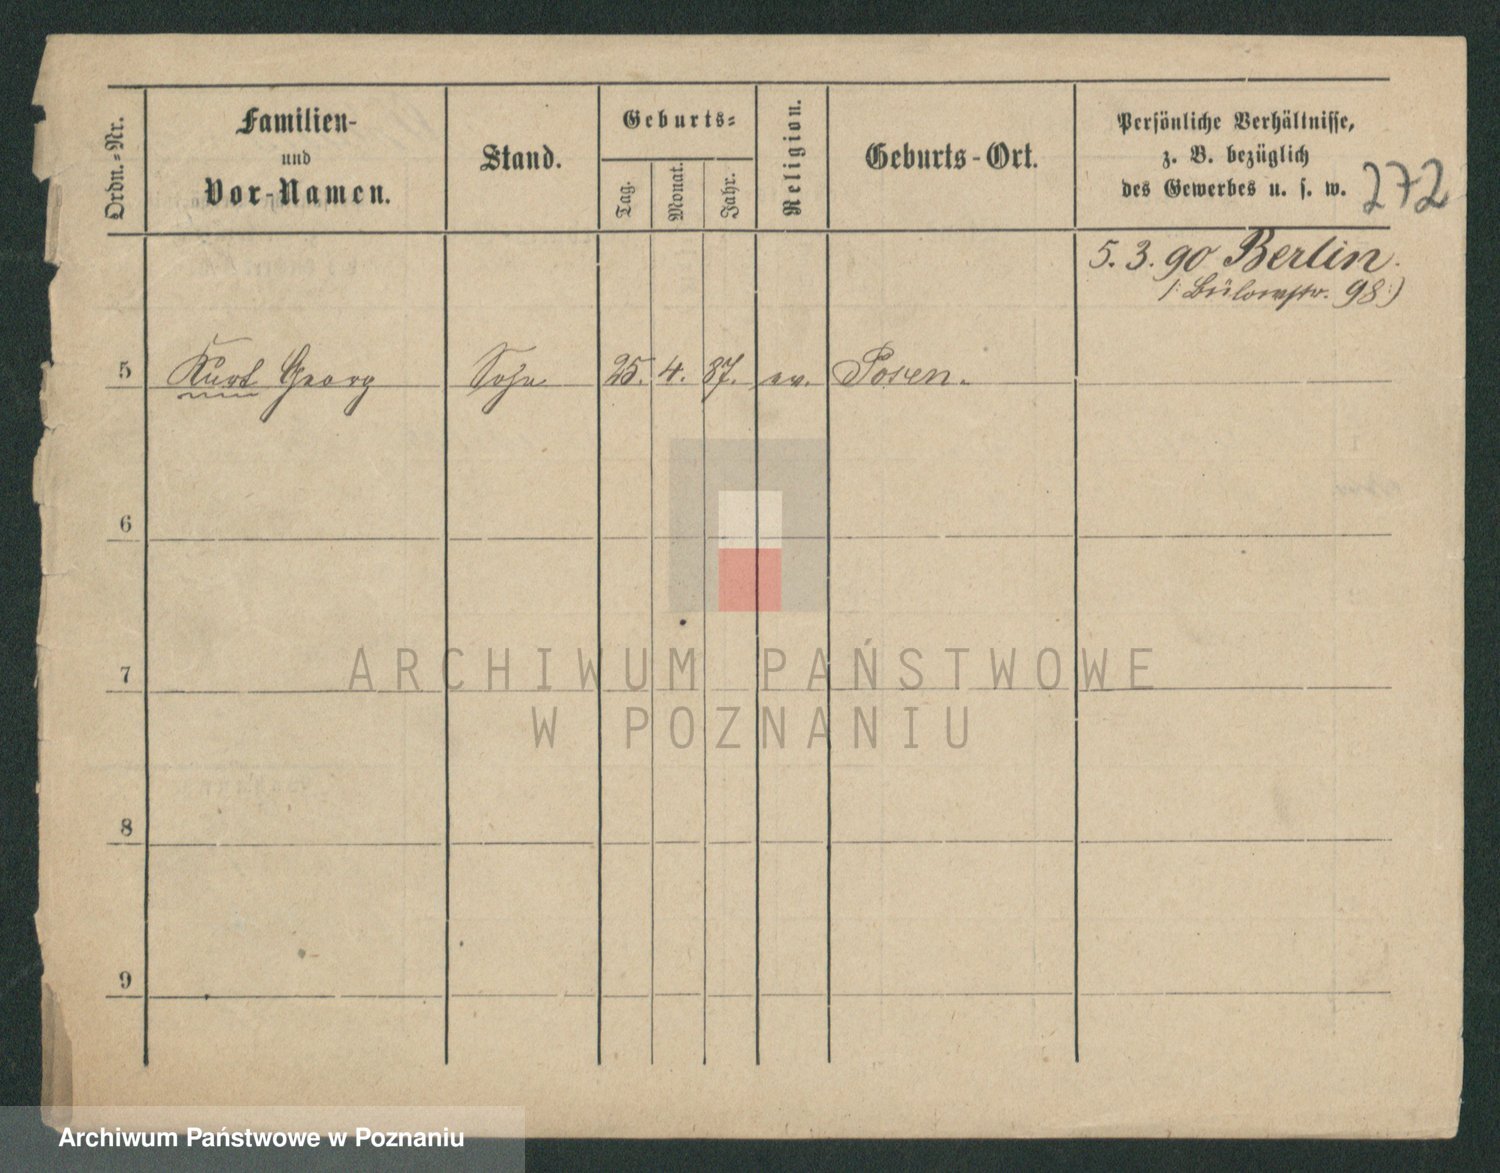 Ordn.-Nr.
Familien-
und
Vor-Namen.
Stand.
Geburts-
Tag.
Monat.
Jahr.
Religion.
Geburts-Ort.
Persönliche Verhältnisse,
z. B. bezüglich
des Gewerbes u. s. w.
272
5. 3. 90 Berlin.
/: Bülowstr. 98 :)
5 Kurt Georg Sohn 25. 4. 87. ev. Posen.
6
7
8
9
ARCHIWUM PAŃSTWOWE
W POZNANIU
Archiwum Państwowe w Poznaniu